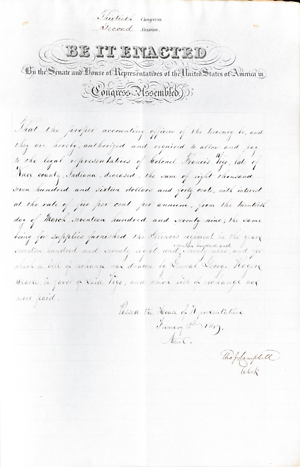 Thirtieth Congress
Second Session
BE IT ENACTED
By the Senate and House of Representatives of the United States of America in
Congress Assembled
That the proper accounting officers of the treasury be, and
they are hereby, authorized and required to allow and pay
to the legal representatives of Colonel Francis Vigo, late of
county, Indiana, deceased, the sum of eight thousand
hundred and sixteen dollars and forty cents, with interest
at the rate of five per cent. per annum, from the
day of March seventeen hundred and seventy nine, the same
being for supplies furnished the Illinois regiment in the year
seventeen hundred and seventy eight and seventy nine, and for
which a bill of exchange was drawn by George Rogers
in favor of said Vigo, and which bill of exchange
paid.
Passed the House of Representatives
January 1849.
Attest.
Th J Campbell
Clerk